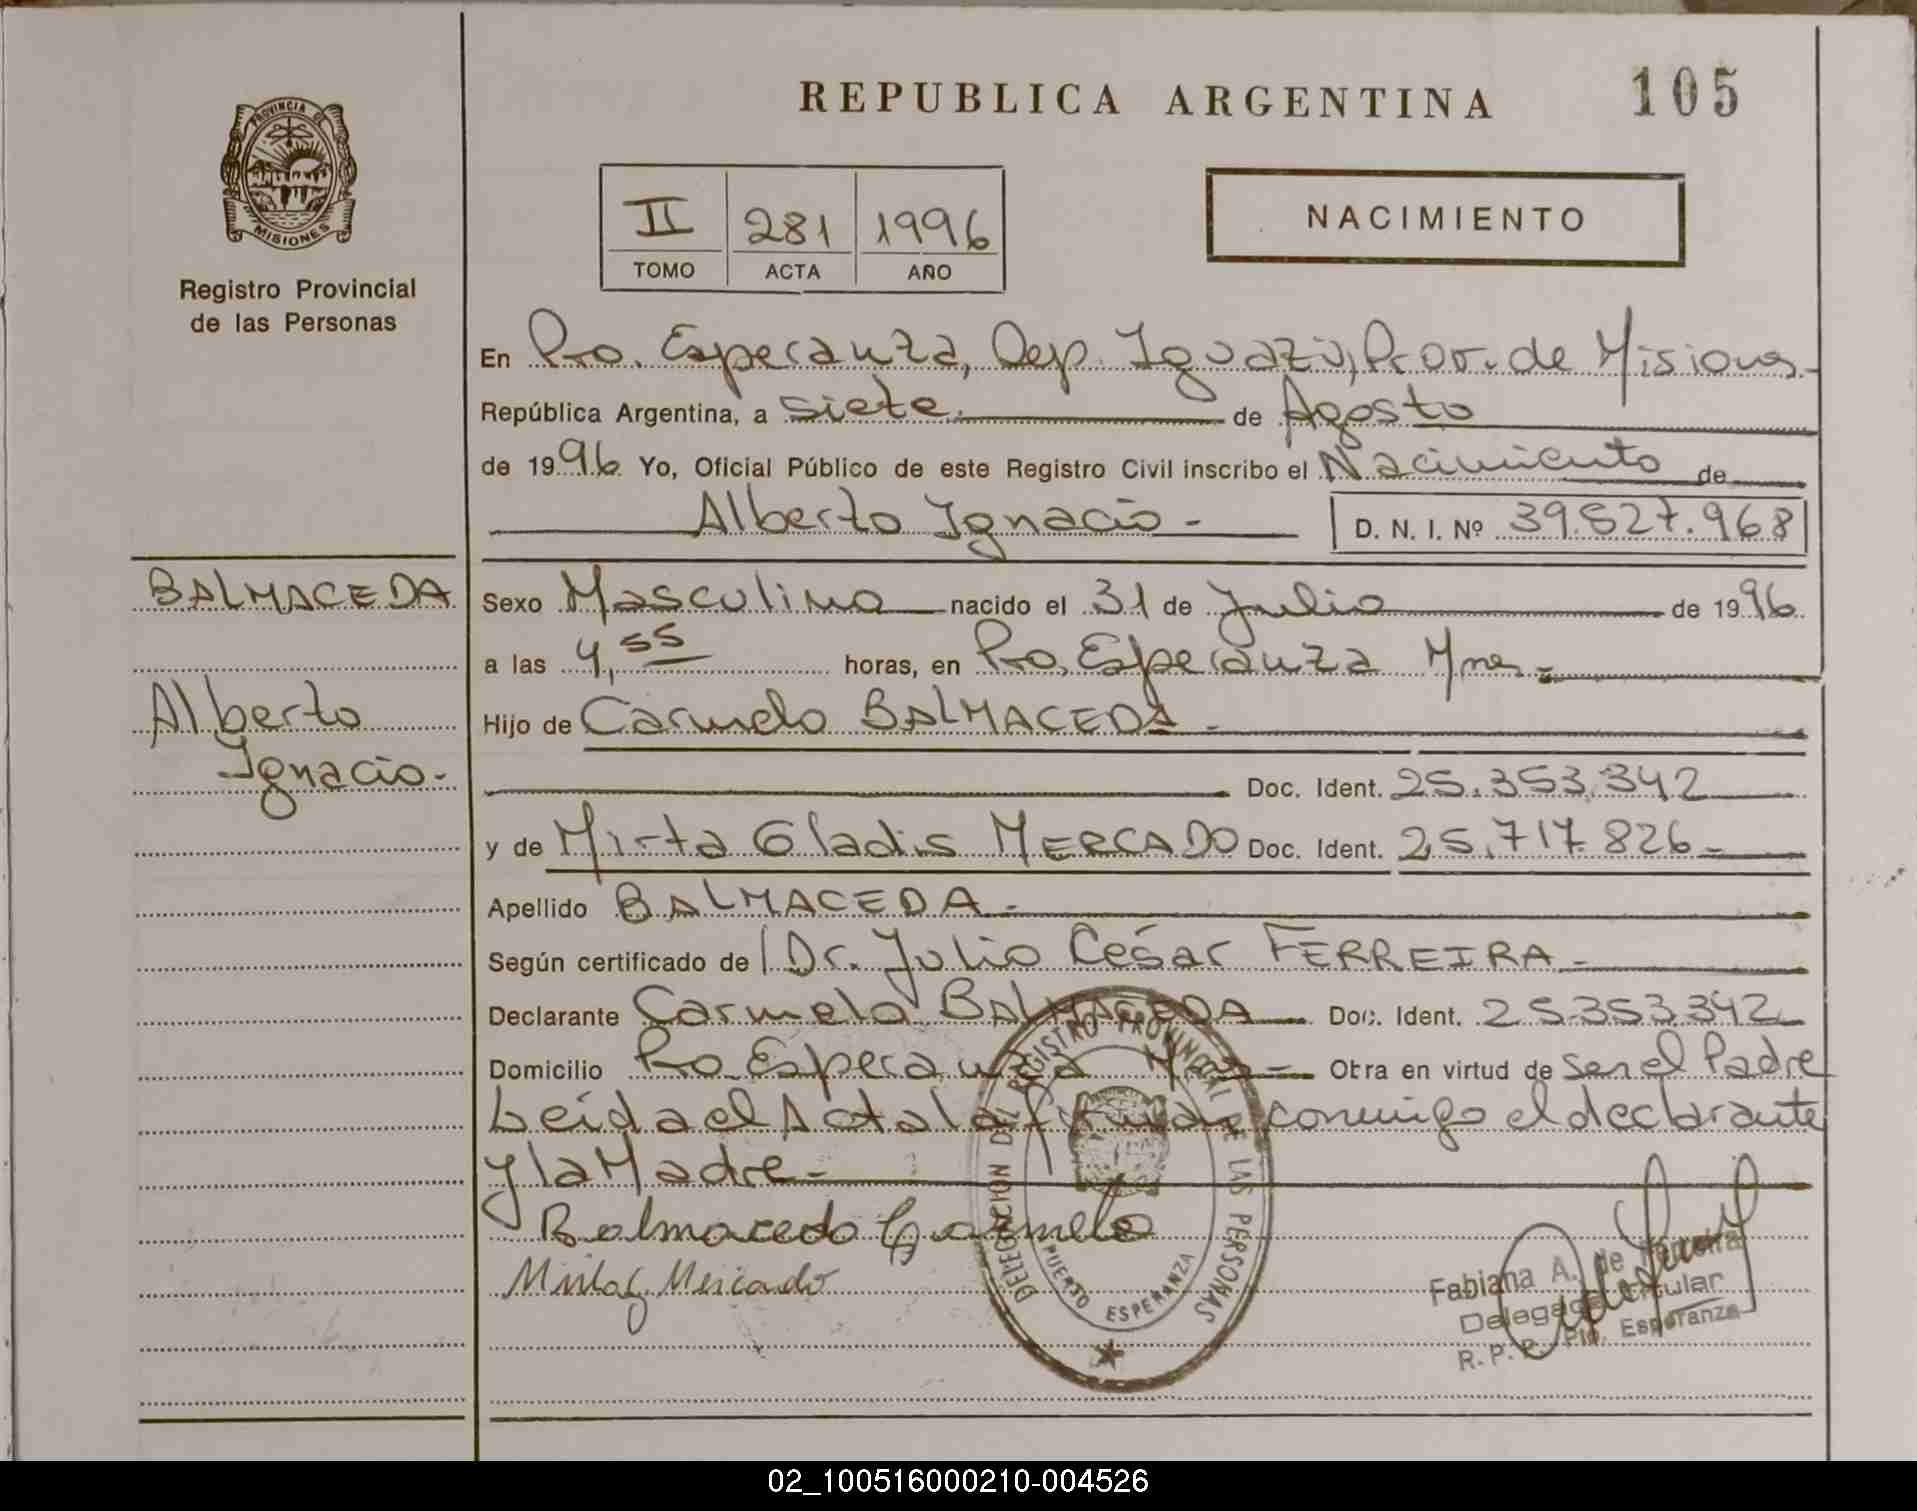 REPUBLICA ARGENTINA
105
PROVINCIA DE
MISIONES
Registro Provincial
de las Personas
II 281 1996
TOMO ACTA AÑO
NACIMIENTO
En Pto. Esperanza, Dep. Iguazú, Prov. de Misiones.-
República Argentina, a siete. de Agosto
de 1996 Yo, Oficial Público de este Registro Civil inscribo el Nacimiento de
Alberto Ignacio - D. N. I. Nº 39.527.968
BALMACEDA
Alberto
Ignacio-
Sexo Masculino nacido el 31 de Julio de 1996
a las 4,55 horas, en Pto. Esperanza Mnes-
Hijo de Carmelo BALMACEDA -
Doc. Ident. 25.353.342
y de Mirta Gladis MERCADO Doc. Ident. 25.717.826-
Apellido BALMACEDA-
Según certificado de Dr. Julio César FERREIRA-
Declarante Carmelo BALMACEDA Doc. Ident. 25.353.342
Domicilio Pto. Esperanza Mnes- Obra en virtud de ser el Padre
Leída el Acta la firman conmigo el declarante
y la Madre-
Balmacedo Carmelo
Mirta G Mercado
DELEGACION DEL REGISTRO PROVINCIAL DE LAS PERSONAS
PUERTO ESPERANZA
Fabiana A. de Ferreira
Delegada Titular
R. P. P. Pto. Esperanza
02_100516000210-004526